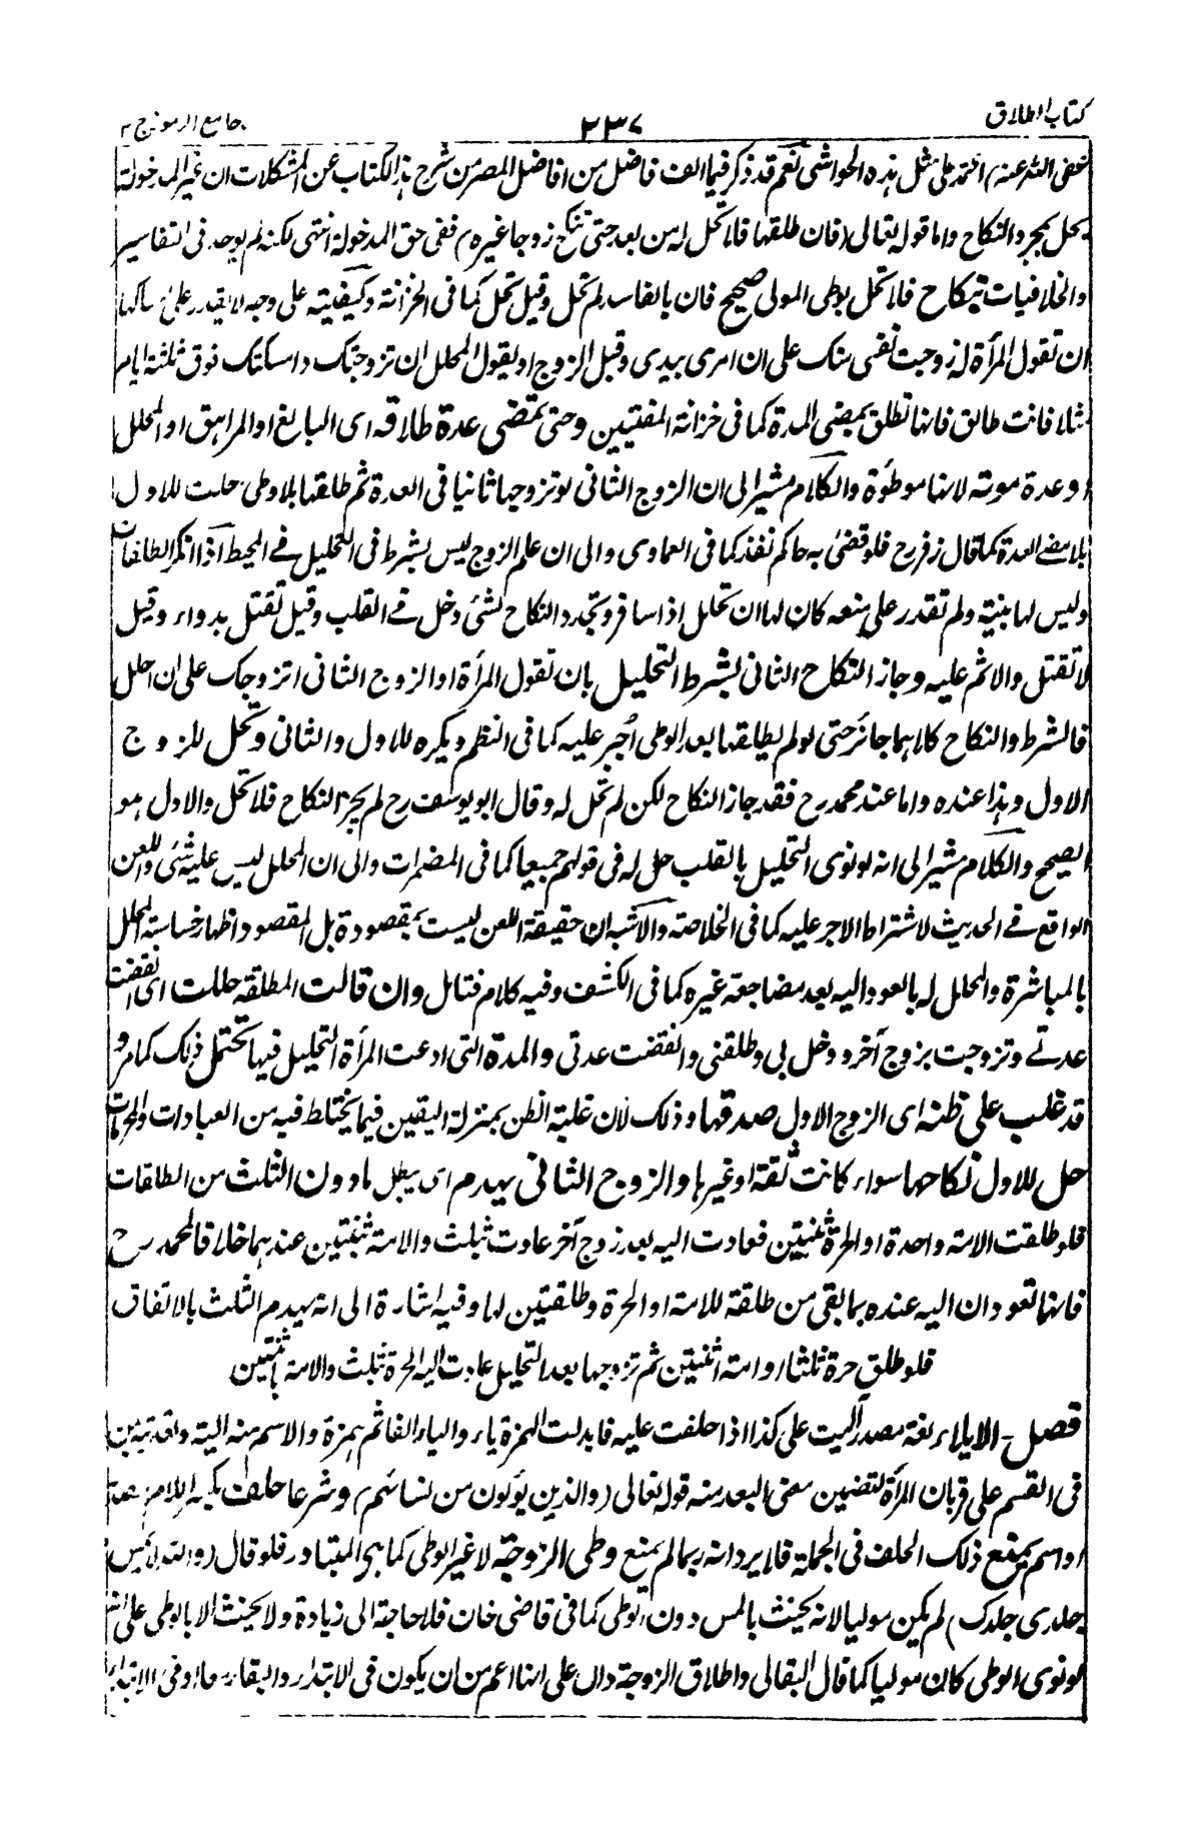 كتاب الطلاق
٢٣٧
جامع الرموز ج ٢
عفى الله عنه) اعتمد على مثل هذه الحواشي نعم قد ذكر فيما الف فاضل من افاضل المصر من شرح هذا الكتاب عن المشكلات ان غير المدخولة
يحل بمجرد النكاح واما قوله تعالى (فان طلقها فلا تحل له من بعد حتى تنكح زوجا غيره) ففى حق المدخولة انتهى لكنه لم يوجد فى التفاسير
والخلافيات بنكاح فلا تحل بوطى المولى صحيح فان بالفاسد لم تحل وقيل تحل كما فى الخزانة وكيفيته على وجه لا يقدر على امساكها
ان تقول المرأة له زوجت نفسى منك على ان امرى بيدى وقبل الزوج او يقول المحلل ان تزوجتك وامسكتك فوق ثلثة ايام
مثلا فانت طالق فانها تطلق بمضى المدة كما فى خزانة المفتيين وحتى تمضى عدة طلاقه اى البالغ او المراهق او المحلل
او عدة موته لانها موطؤة والكلام مشير الى ان الزوج الثانى لو تزوجها ثانيا فى العدة ثم طلقها بلا وطى حلت للاول
بلا مضى العدة كما قال زفر رح فلو قضى به حاكم نفذ كما فى العمادى والى ان علم الزوج ليس بشرط فى التحليل فى المحيط اذا انكر الطلقات
وليس لها بينة ولم تقدر على منعه كان لها ان تحلل اذا سافر وتجدد النكاح لشئ دخل فى القلب وقيل تقتل بدواء وقيل
لا تقتل والاثم عليه وجاز النكاح الثانى بشرط التحليل بان تقول المرأة او الزوج الثانى اتزوجك على ان احلل
فالشرط والنكاح كلاهما جائز حتى لو لم يطلقها بعد الوطى اُجبر عليه كما فى النظم ويكره للاول والثانى وتحل للزوج
الاول وهذا عنده واما عند محمد رح فقد جاز النكاح لكن لم تحل له وقال ابو يوسف رح لم يجز النكاح فلا تحل والاول هو
الصحيح والكلام مشير الى انه لو نوى التحليل بالقلب حل له فى قولهم جميعا كما فى المضمرات والى ان المحلل ليس عليه شئ واللعن
الواقع فى الحديث لاشتراط الاجر عليه كما فى الخلاصة والاشبه ان حقيقة اللعن ليست بمقصودة بل المقصود اظهار خساسة المحلل
بالمباشرة والمحلل له بالعود اليه بعد مضاجعة غيره كما فى الكشف وفيه كلام فتامل وان قالت المطلقة حللت اى انقضت
عدتى وتزوجت بزوج آخر ودخل بى وطلقنى وانقضت عدتى والمدة التى ادعت المرأة التحليل فيها تحتمل ذلك كما مر و
قد غلب على ظنه اى الزوج الاول صدقها وذلك لان غلبة الظن بمنزلة اليقين فيما يختلط فيه من العبادات والحرمات
حل للاول نكاحها سواء كانت ثقة او غيرها والزوج الثانى يهدم اى يبطل ما دون الثلث من الطلقات
فلو طلقت الامة واحدة او الحرة ثنتين فعادت اليه بعد زوج آخر عادت بثلث والامة بثنتين عندهما خلافا لمحمد رح
فانها تعودان اليه عنده بما بقى من طلقة للامة او الحرة وطلقتين لها وفيه اشارة الى انه يهدم الثلث بالاتفاق
فلو طلق حرة ثلثا او امة اثنتين ثم تزوجها بعد التحليل عادت اليه الحرة بثلث والامة باثنتين
فصل - الايلاء لغة مصدر آليت على كذا اذا حلفت عليه فابدلت الهمزة ياء والياء الفا ثم همزة والاسم منه الية وتعديته بمن
فى القسم على قربان المرأة لتضمين معنى البعد منه قوله تعالى (والذين يؤلون من نسائهم) وشرعا حلف بكسر اللام مصدر
او اسم يمنع ذلك الحلف فى الجملة فلا يرد انه ربما لم يمنع وطى الزوجة لا غير الوطى كما هى المتبادر فلو قال (والله لا يمس
جلدى جلدك) لم يكن موليا لانه يحنث بالمس دون الوطى كما فى قاضى خان فلا حاجة الى زيادة ولا يحنث الا بالوطى على انه
لو نوى الوطى كان موليا كما قال البقالى واطلاق الزوجة دال على انها اعم من ان يكون فى الابتداء والبقاء معا او فى الابتداء